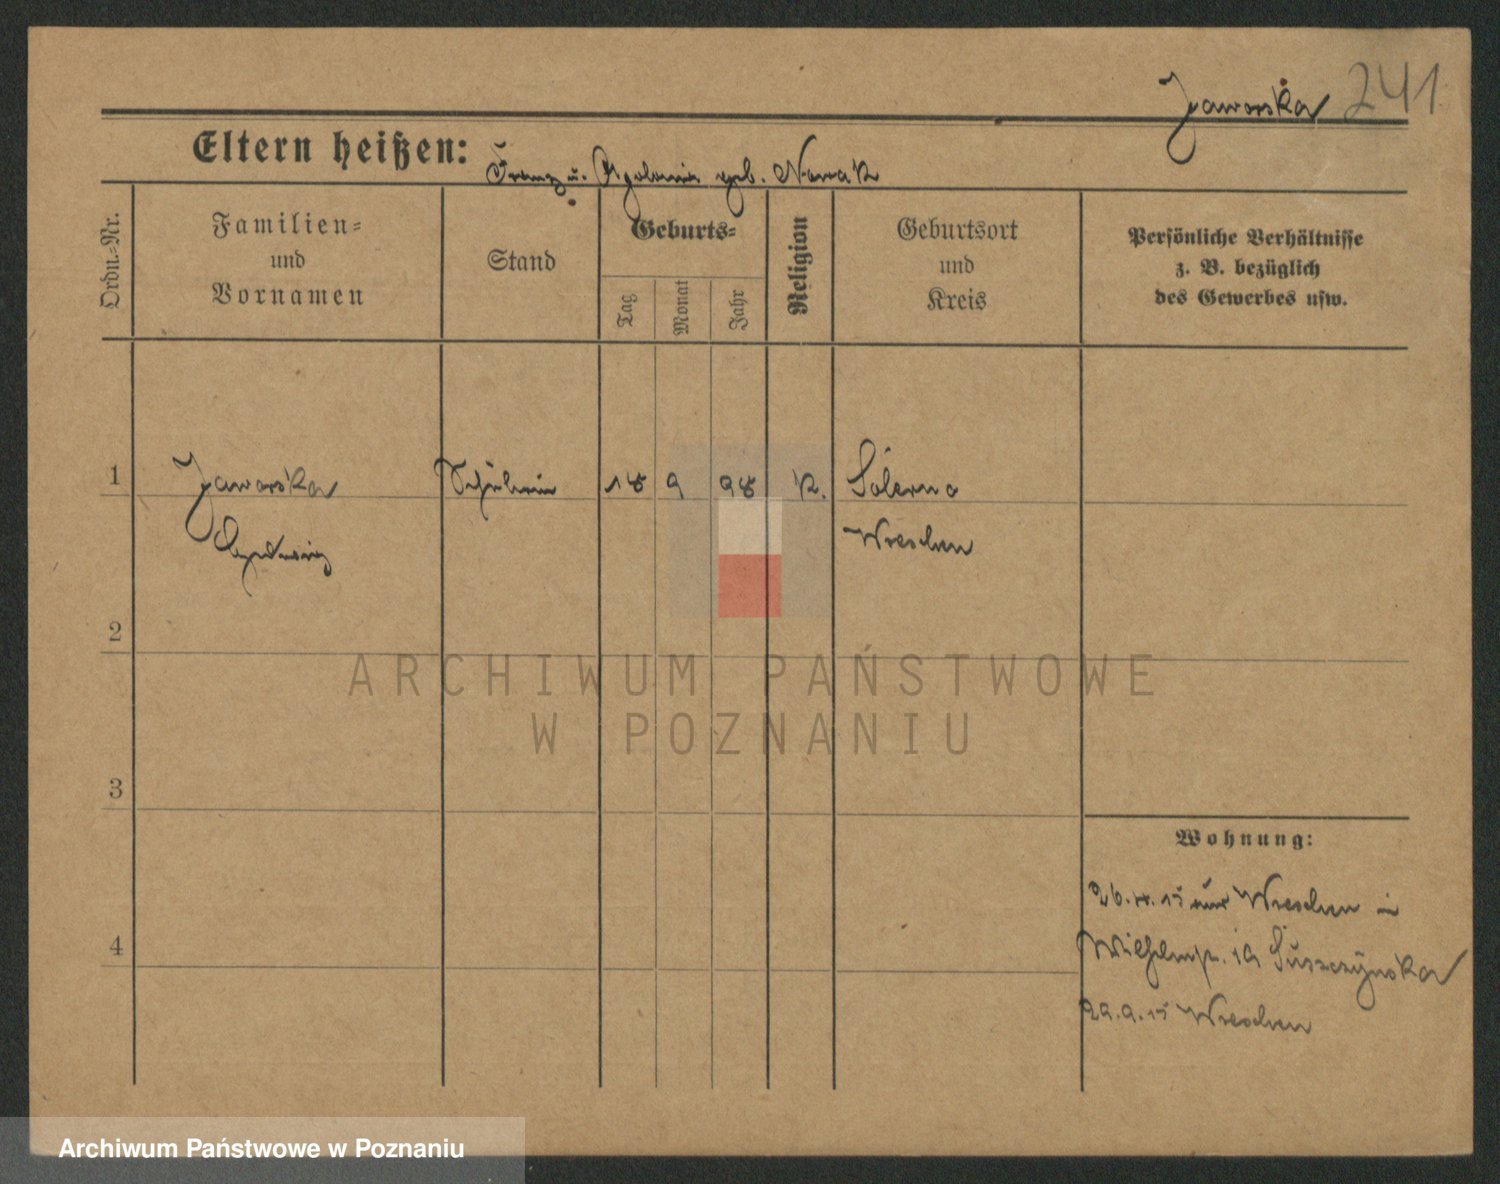 Jaworska 241
Eltern heißen: Franz u. Apolonia geb. Nowak
Ordn.-Nr.
Familien-
und
Vornamen
Stand
Geburts-
Tag
Monat
Jahr
Religion
Geburtsort
und
Kreis
Persönliche Verhältnisse
z. B. bezüglich
des Gewerbes usw.
1 Jaworska Schülerin 18 9 98 K.
Hedwig Wreschen
2
3
4
Wohnung:
15 Wreschen in
Wilhelmstr. Suszczynska
15 Wreschen
ARCHIWUM PAŃSTWOWE
W POZNANIU
Archiwum Państwowe w Poznaniu